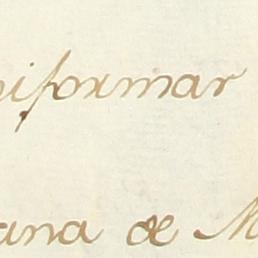 niformar
ana de M